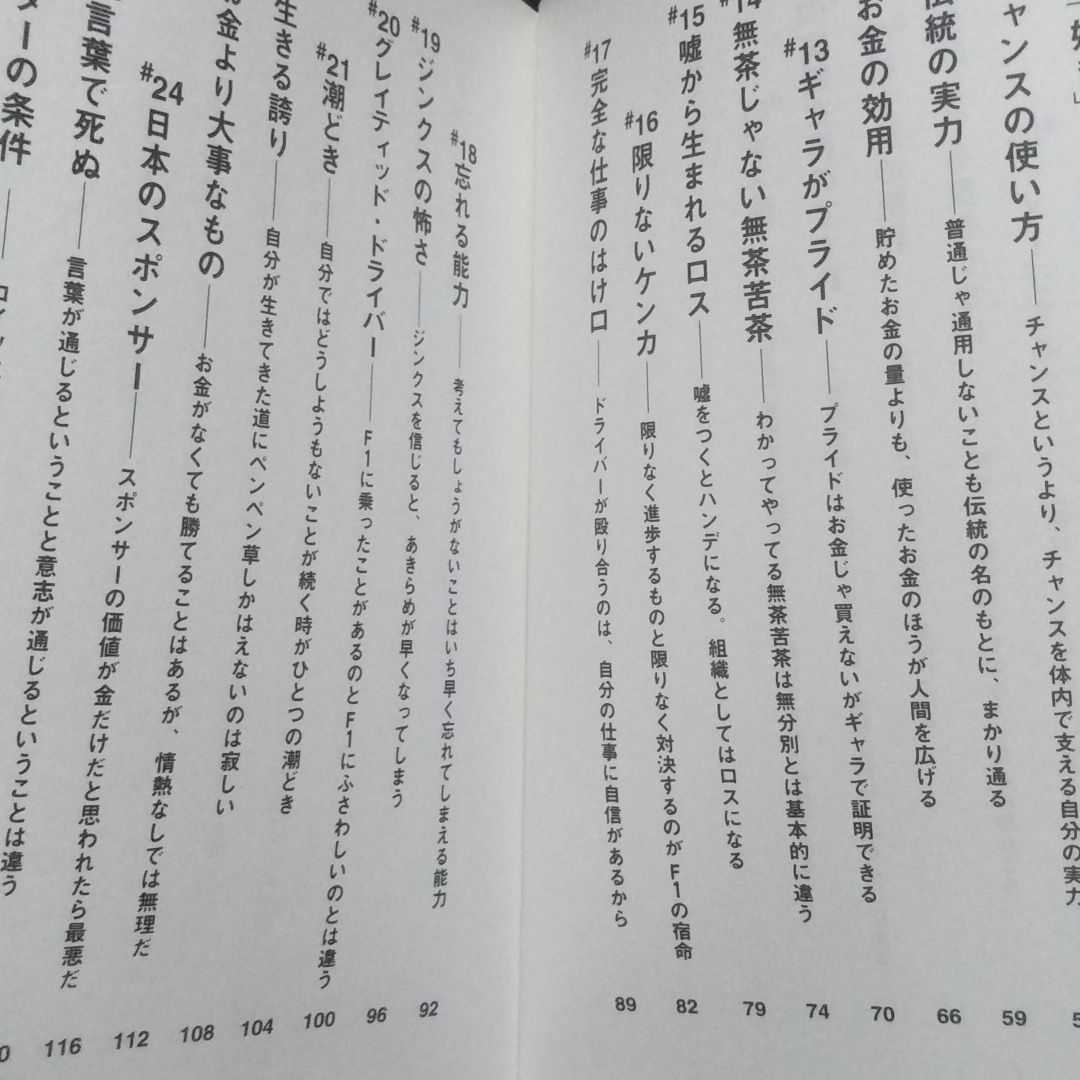 チャンスの使い方――チャンスというより、チャンスを体内で支える自分の実力
59
伝統の実力――普通じゃ通用しないことも伝統の名のもとに、まかり通る
66
お金の効用――貯めたお金の量よりも、使ったお金のほうが人間を広げる
70
#13ギャラがプライド――プライドはお金じゃ買えないがギャラで証明できる
74
#14無茶じゃない無茶苦茶――わかってやってる無茶苦茶は無分別とは基本的に違う
79
#15嘘から生まれるロス――嘘をつくとハンデになる。組織としてはロスになる
82
#16限りないケンカ――限りなく進歩するものと限りなく対決するのがF1の宿命
#17完全な仕事のはけ口――ドライバーが殴り合うのは、自分の仕事に自信があるから
89
#18忘れる能力――考えてもしょうがないことはいち早く忘れてしまえる能力
92
#19ジンクスの怖さ――ジンクスを信じると、あきらめが早くなってしまう
96
#20グレイティッド・ドライバー――F1に乗ったことがあるのとF1にふさわしいのとは違う
100
#21潮どき――自分ではどうしようもないことが続く時がひとつの潮どき
104
生きる誇り――自分が生きてきた道にペンペン草しかはえないのは寂しい
108
お金より大事なもの――お金がなくても勝てることはあるが、情熱なしでは無理だ
112
#24日本のスポンサー――スポンサーの価値が金だけだと思われたら最悪だ
116
言葉で死ぬ――言葉が通じるということと意志が通じるということは違う
ターの条件――